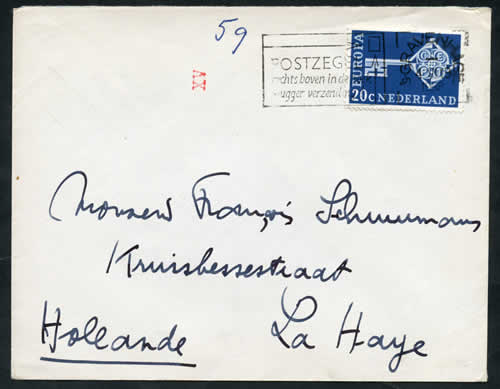 59
XV
POSTZEG
rechts boven in de
vlugger verzend
'S-GRAVENHAGE
EUROPA
20c NEDERLAND
Monsieur François Schuurmans
Kruisbessestraat
Hollande La Haye